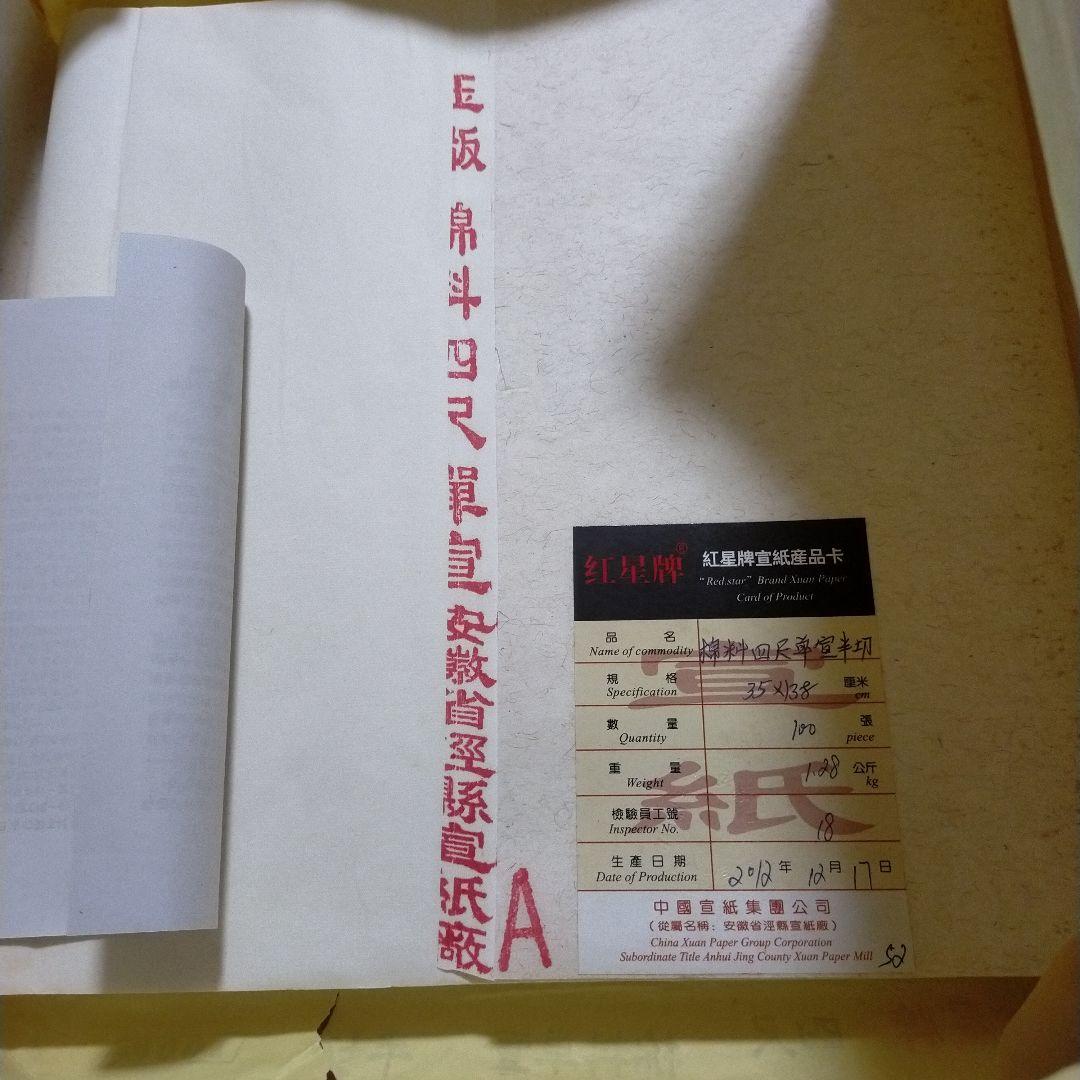 玉版 綿料四尺單宣安徽省涇縣宣紙廠
A
红星牌®
紅星牌宣紙産品卡
"Red.star" Brand Xuan Paper
Card of Product
品 名 棉料四尺单宣半切
Name of commodity
規 格 35×138 厘米
Specification cm
數 量 100 張
Quantity piece
重 量 1.28 公斤
Weight kg
檢驗員工號 18
Inspector No.
生產日期 2012年12月17日
Date of Production
宣
紙
中國宣紙集團公司
(從屬名稱:安徽省涇縣宣紙廠)
China Xuan Paper Group Corporation
Subordinate Title Anhui Jing County Xuan Paper Mill